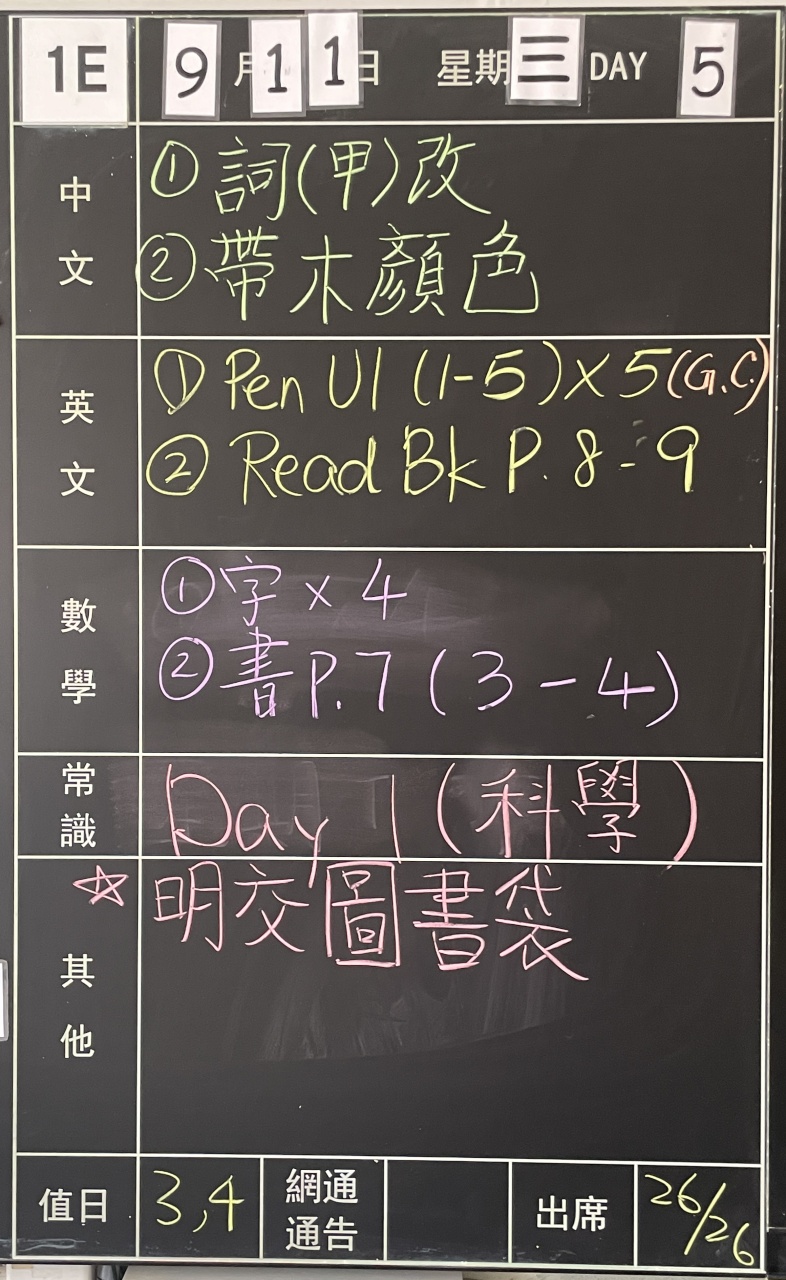 1E 9月11日 星期三 DAY 5
中文
①詞(甲)改
②帶木顏色
英文
① Pen U1 (1-5)×5(G.C.)
② Read Bk P. 8-9
數學
①字×4
②書P.7(3-4)
常識
Day 1(科學)
其他
☆明交圖書袋
值日 3,4 網通通告 出席 26/26